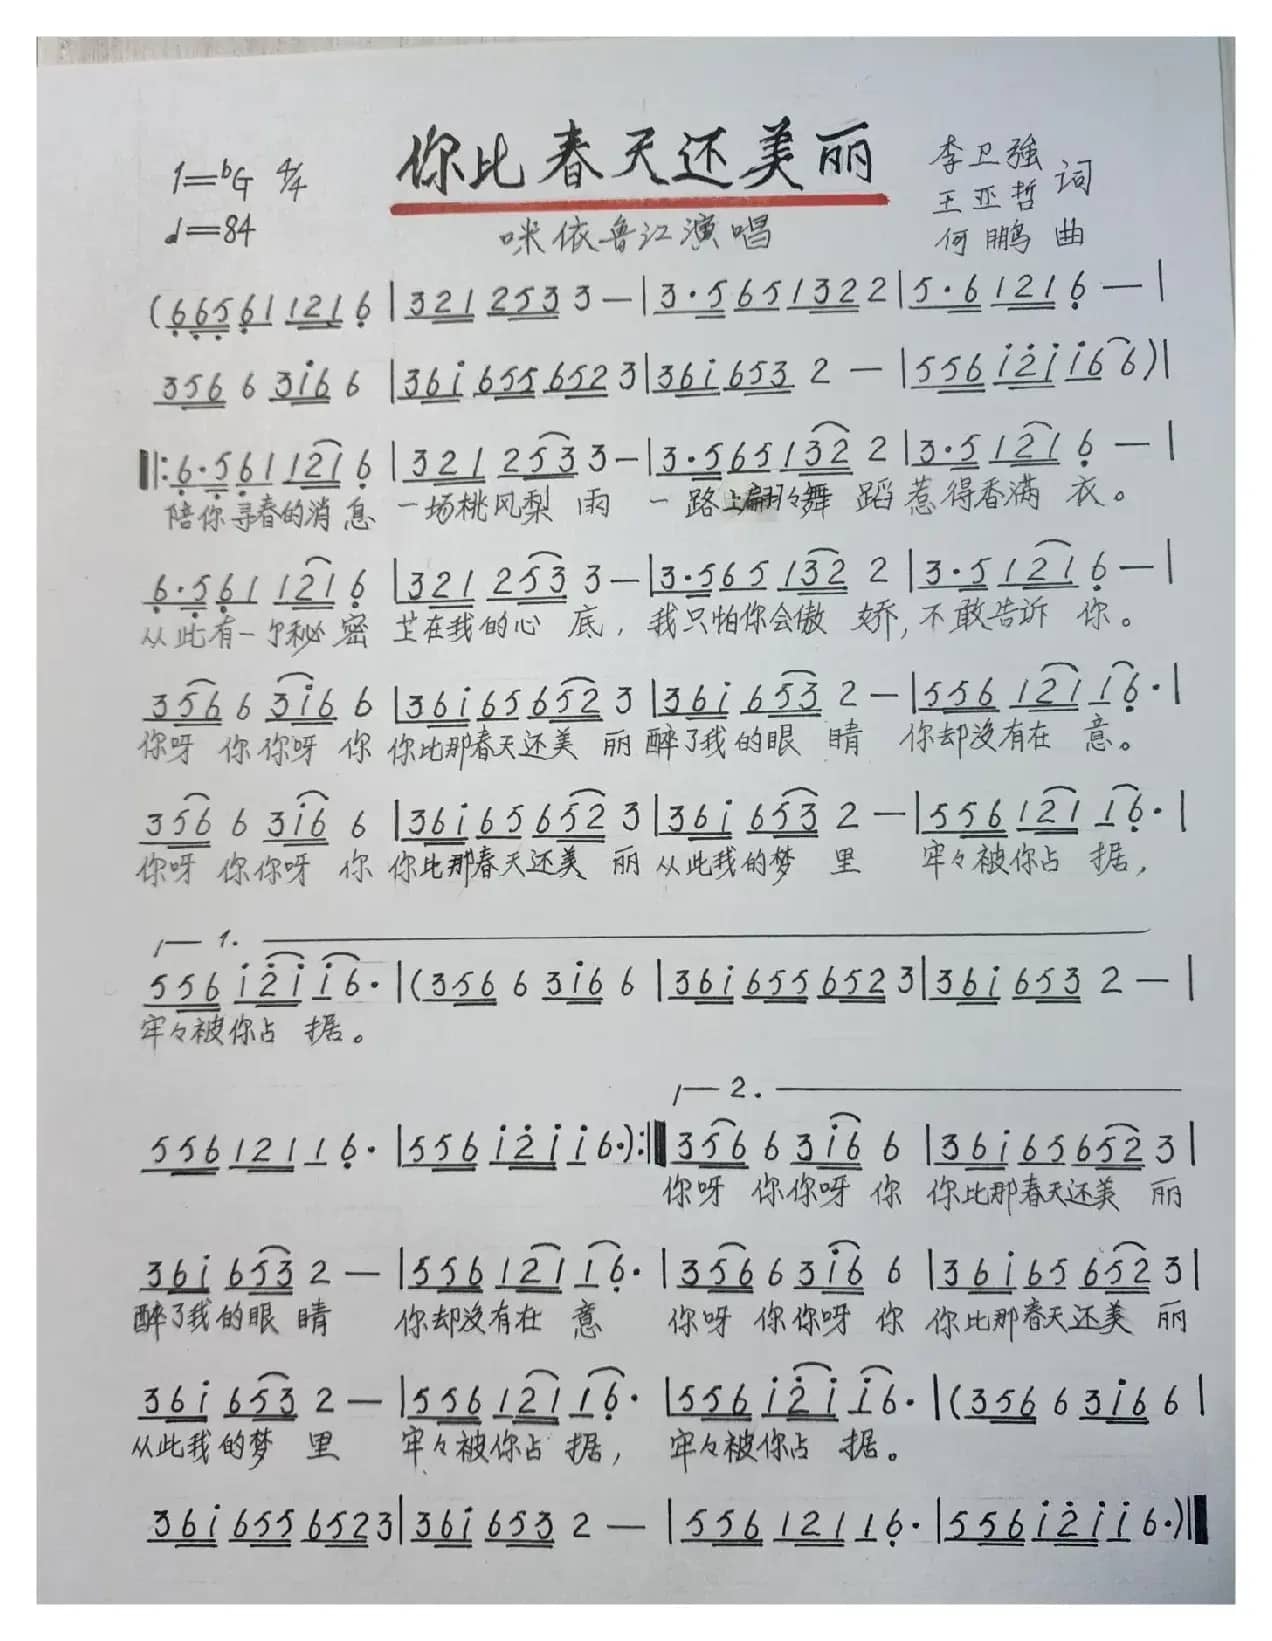 你比春天还美丽
1=bG 4/4
♩=84
咪依鲁江演唱
李卫强
王亚哲 词
何鹏 曲
(665611216|321 2533 3—|3·56513222|5·61216—|
356 6 3i6 6|36i 6556523|36i 653 2—|556 i2i i6 6)|
‖:6·5611216|321 253 3—|3·565132 2|3·51216—|
陪你寻春的消息 一场桃风梨 雨 一路上翩々舞 蹈惹得香满 衣。
6·561 1216|321 253 3—|3·565132 2|3·51216—|
从此有一个秘密 芷在我的心 底, 我只怕你会傲 娇,不敢告诉 你。
356 6 3i6 6|36i656523|36i 653 2—|556 121 16·|
你呀 你你呀 你 你比那春天还美 丽 醉了我的眼 睛 你却没有在 意。
356 6 3i6 6|36i656523|36i 653 2—|556 121 16·|
你呀 你你呀 你 你比那春天还美 丽 从此我的梦 里 牢々被你占 据,
1.
556 i2i i6·|(356 6 3i6 6|36i 6556523|36i 653 2—|
牢々被你占 据。
2.
556 121 16·|556 i2i i6·):‖356 6 3i6 6|36i656523|
你呀 你你呀 你 你比那春天还美 丽
36i 653 2—|556 121 16·|356 6 3i6 6|36i656523|
醉了我的眼 睛 你却没有在 意 你呀 你你呀 你 你比那春天还美 丽
36i 653 2—|556 121 16·|556 i2i i6·|(356 6 3i6 6|
从此我的梦 里 牢々被你占 据, 牢々被你占 据。
36i 6556523|36i 653 2—|556 121 16·|556 i2i i6·)‖